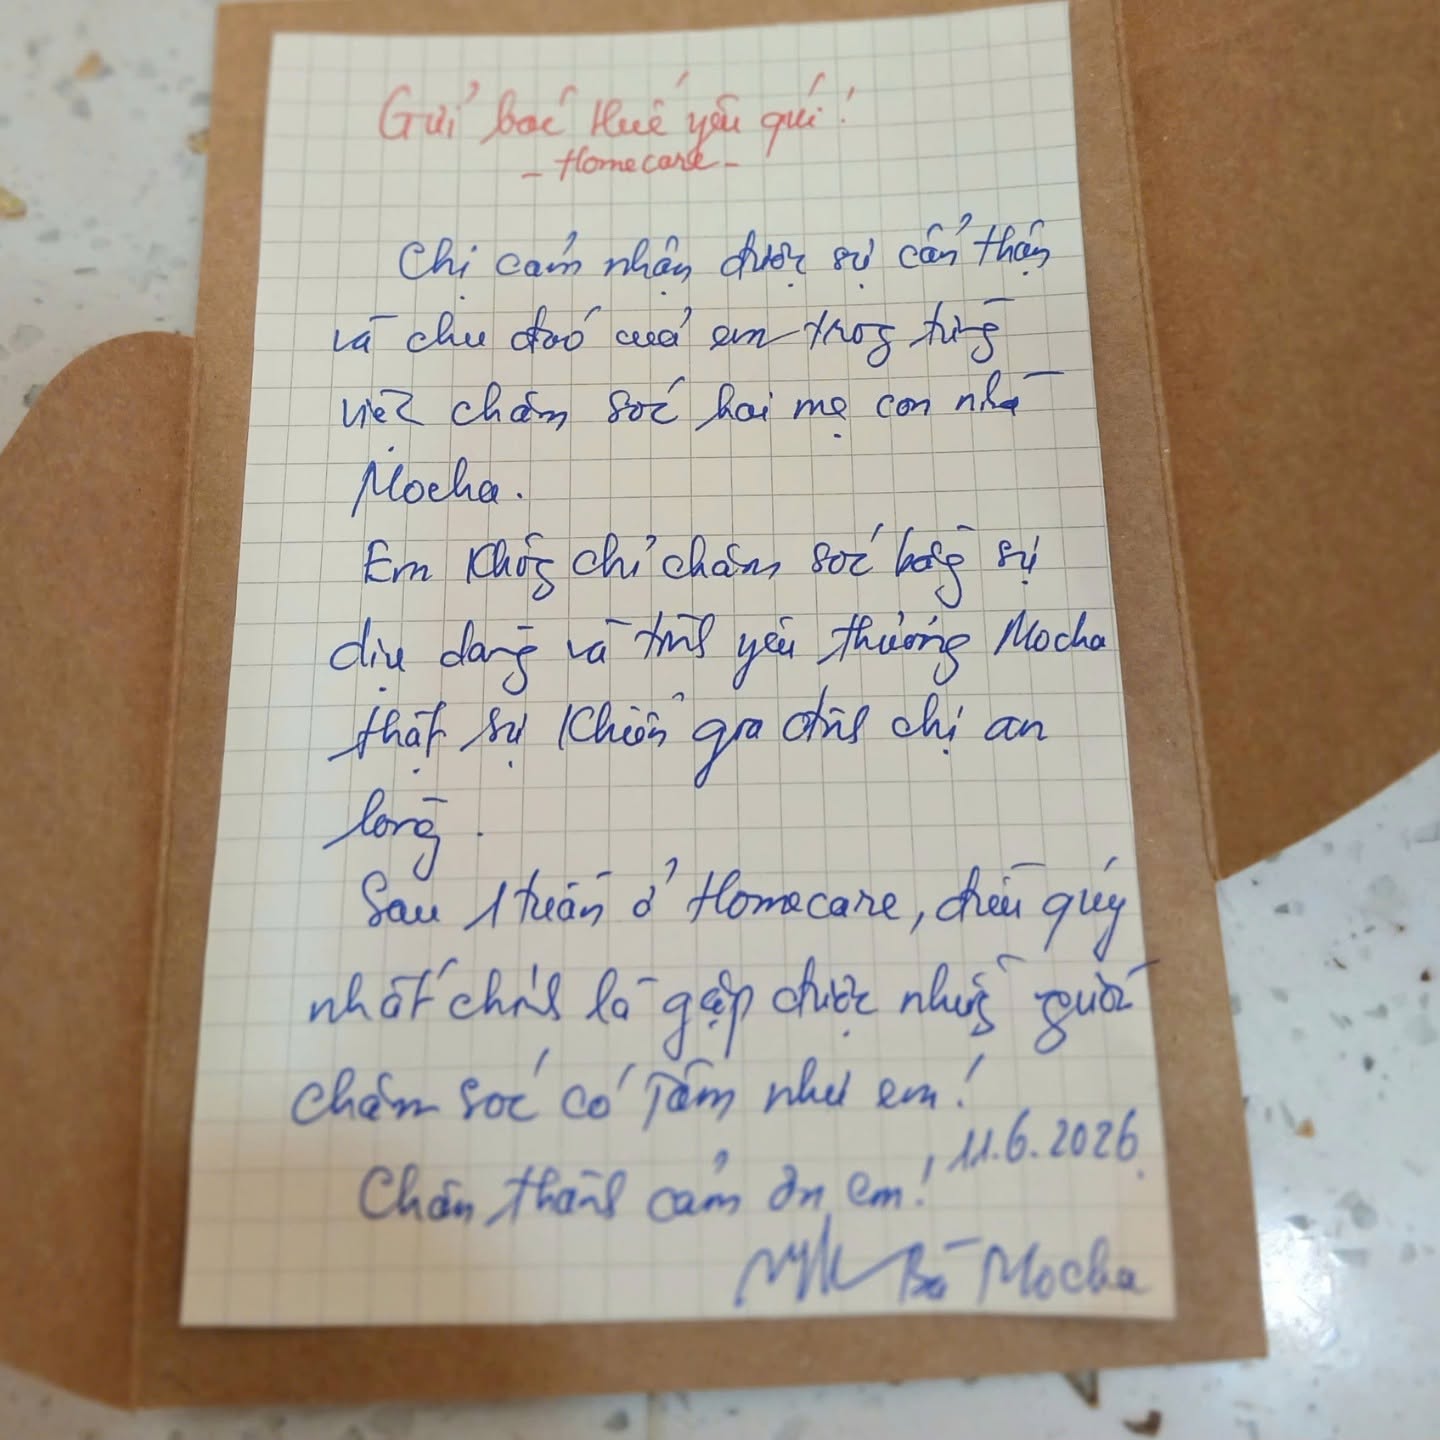 Gửi bác Huế yêu quí!
- Homecare -
Chị cảm nhận được sự cẩn thận
và chu đáo của em trong từng
việc chăm sóc hai mẹ con nhà
Mocha.
Em không chỉ chăm sóc bằng sự
dịu dàng và tình yêu thương Mocha
thật sự khiến gia đình chị an
lòng.
Sau 1 tuần ở Homecare, điều quý
nhất chính là gặp được những người
chăm sóc có Tâm như em!
11.6.2026
Chân thành cảm ơn em!
Bà Mocha